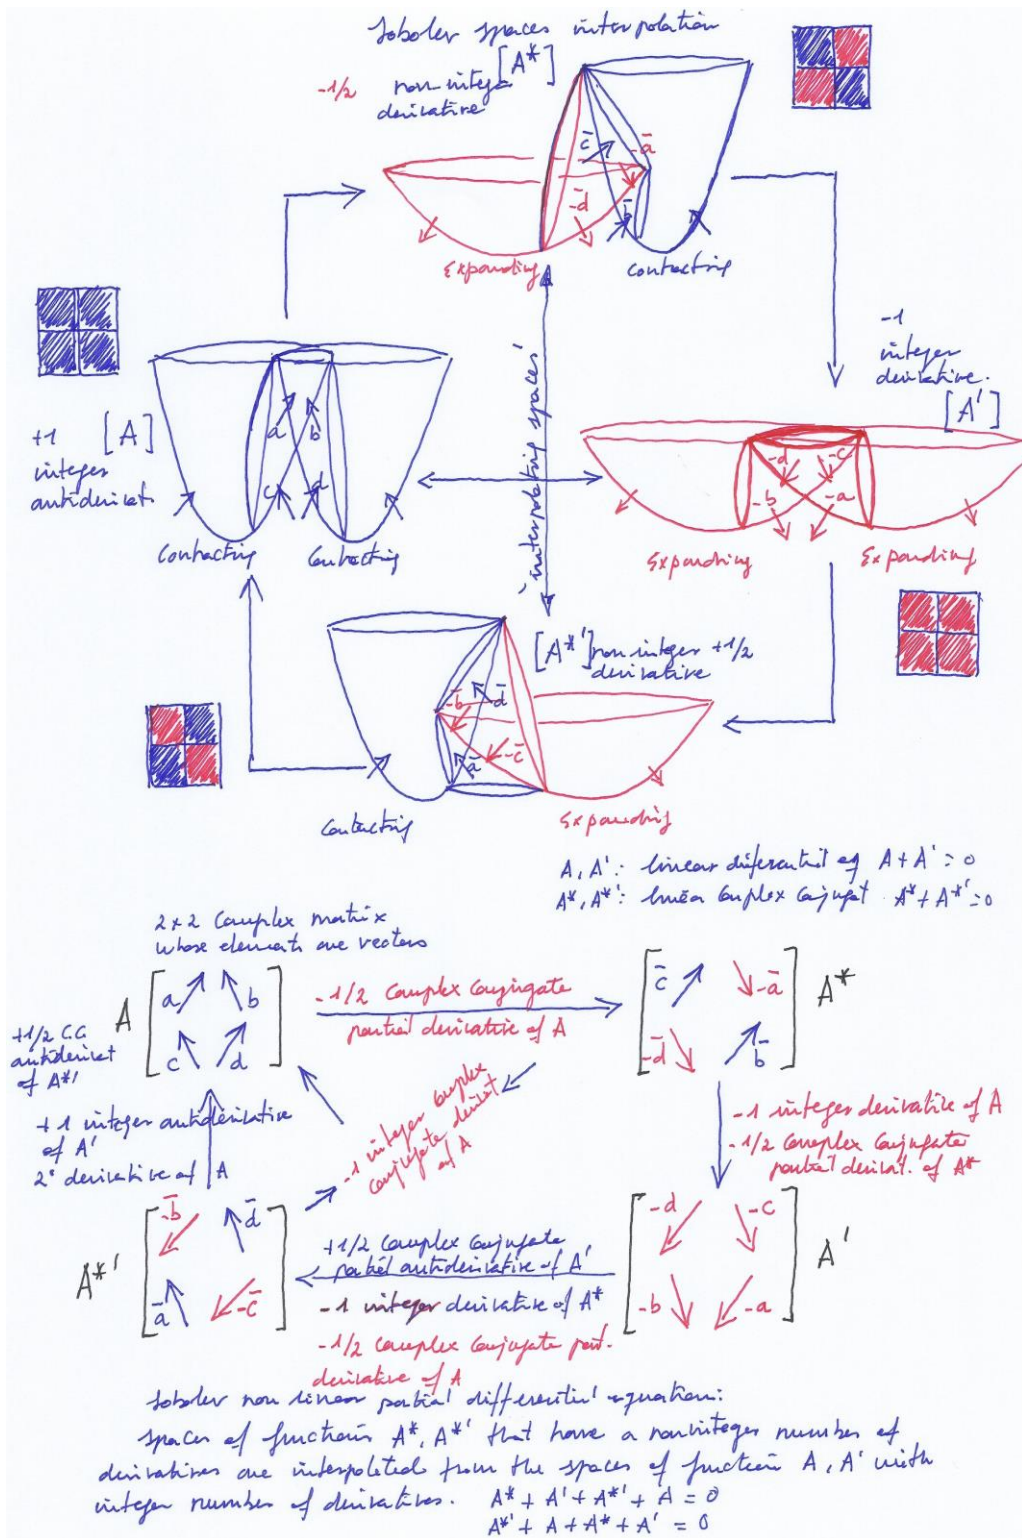 Sobolev spaces interpolation
[A*]
-1/2 non integer
derivative
c̄
-ā
-d̄
b̄
Expanding
Contracting
-1
integer
derivative.
[A']
+1 [A]
integer
antiderivat.
a b
c d
Contracting Contracting
'interpolating spaces'
-d -c
-b -a
Expanding Expanding
[A*'] non integer +1/2
derivative
-b̄ d̄
ā -c̄
Contracting
Expanding
A, A': linear diferential eq A + A' = 0
A*, A*': linear complex conjugat A* + A*' = 0
2 x 2 Complex matrix
whose elements are vectors
A
a b
c d
-1/2 Complex Conjugate
partial derivative of A
c̄ -ā
-d̄ b̄
A*
+1/2 C.C
antiderivat
of A*'
+1 integer antiderivative
of A'
2° derivative of A
-1 integer complex
conjugate derivat
of A
-1 integer derivative of A
-1/2 Complex Conjugate
partial derivat. of A*
A*'
-b̄ d̄
ā -c̄
+1/2 Complex Conjugate
partial antiderivative of A'
-1 integer derivative of A*
-1/2 Complex Conjugate part.
derivative of A
-d -c
-b -a
A'
Sobolev non linear partial differential equation:
spaces of functions A*, A*' that have a noninteger number of
derivatives are interpolated from the spaces of function A, A' with
integer number of derivatives. A* + A' + A*' + A = 0
A*' + A + A* + A' = 0